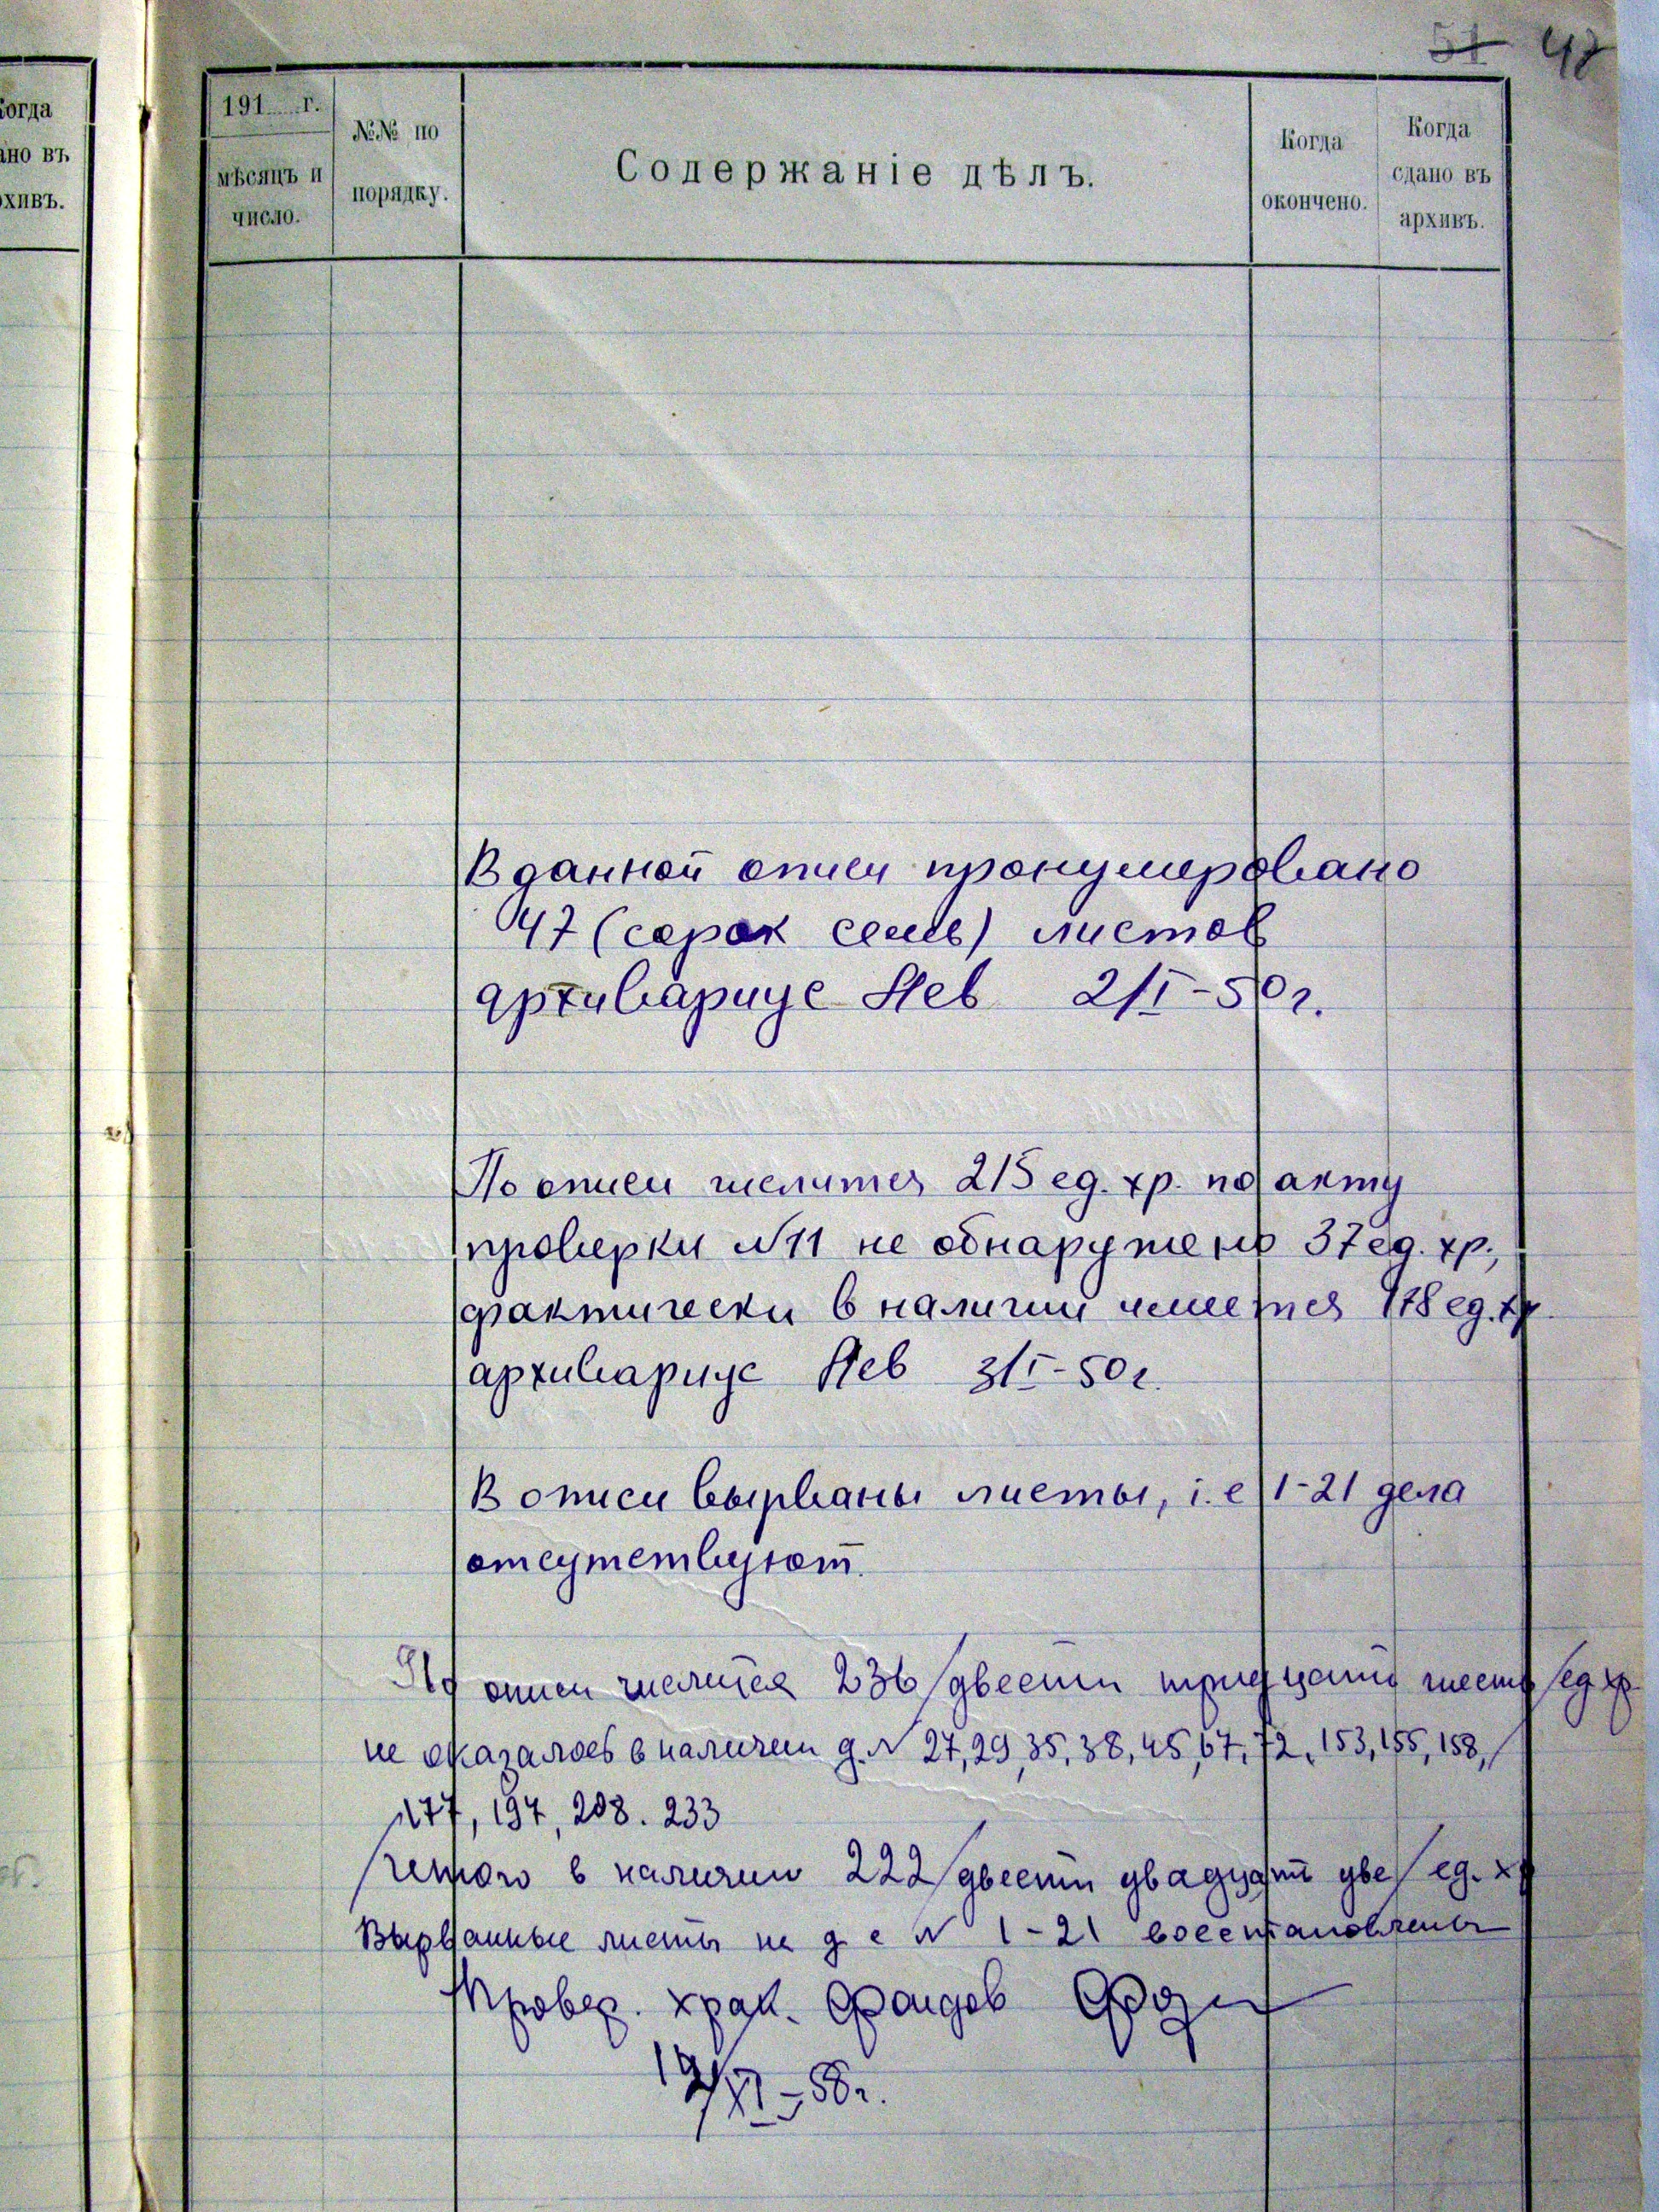 51 48
огда
ано въ
рхивъ.
191 г.
мѣсяцъ и
число.
№№ по
порядку.
Содержаніе дѣлъ.
Когда
окончено.
Когда
сдано въ
архивъ.
В данной описи пронумеровано
47 (сорок семь) листов
архивариус 2/I-50г.
По описи числится 215 ед. хр. по акту
проверки N11 не обнаружено 37 ед. хр.,
фактически в наличии имеется 178 ед. хр.
архивариус 3/I-50г.
В описи вырваны листы, i.е 1-21 дела
отсутствуют.
По описи числится 236 /двести тридцать шесть/ ед. хр
не оказалось в наличии д. N 27, 29, 35, 38, 45, 67, 72, 153, 155, 158,
177, 197, 208. 233
итого в наличии 222 /двести двадцать две/ ед. хр
Вырванные листы на д с N 1-21 восстановлены
Провер. хран. фондов
/XI-58г.